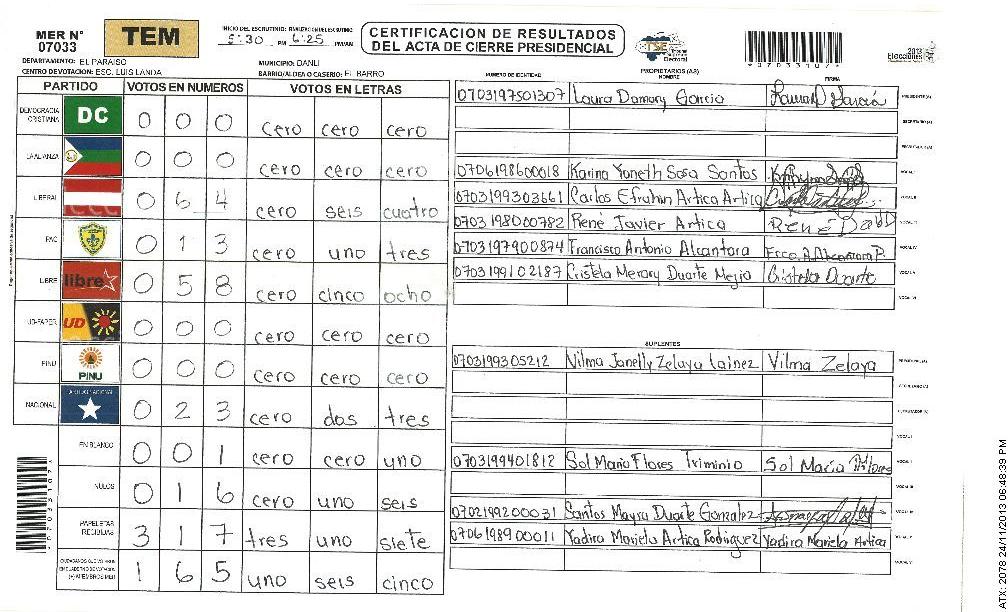 MER N° 07033
TEM
INICIO DEL ESCRUTINIO:
5:30 PM 6:25 PM/AN
CERTIFICACION DE RESULTADOS
DEL ACTA DE CIERRE PRESIDENCIAL
TSE Tribunal Supremo Electoral
*07033107*
2013 Elecciones
DEPARTAMENTO: EL PARAISO
MUNICIPIO: DANLI
CENTRO DE VOTACION: ESC. LUIS LANDA
BARRIO/ALDEA O CASERIO: EL BARRO
PARTIDO VOTOS EN NUMEROS VOTOS EN LETRAS
DEMOCRACIA CRISTIANA DC 0 0 0 cero cero cero
LA ALIANZA 0 0 0 cero cero cero
LIBERAL 0 6 4 cero seis cuatro
PAC 0 1 3 cero uno tres
LIBRE libre 0 5 8 cero cinco ocho
UD-FAPER UD 0 0 0 cero cero cero
PINU PINU 0 0 0 cero cero cero
NACIONAL PARTIDO NACIONAL 0 2 3 cero dos tres
EN BLANCO 0 0 1 cero cero uno
NULOS 0 1 6 cero uno seis
PAPELETAS RECIBIDAS 3 1 7 tres uno siete
1 6 5 uno seis cinco
NUMERO DE IDENTIDAD PROPIETARIOS (AS) NOMBRE FIRMA
0703197501307 Laura Damary Garcia Laura D Garcia PRESIDENTE (A)
SECRETARIO (A)
ESCRUTADOR (A)
0706198600018 Karina Yoneth Sosa Santos VOCAL I
0703199303661 Carlos Efrahin Artica Artica VOCAL II
0703198000782 René Javier Artica René VOCAL III
0703197900874 Francisco Antonio Alcantara Fco. A. Alcantara P. VOCAL IV
0703199102187 Cristela Merary Duarte Mejia Cristela Duarte VOCAL V
VOCAL VI
SUPLENTES
0703199305212 Vilma Janelly Zelaya Lainez Vilma Zelaya PRESIDENTE (A)
SECRETARIO (A)
ESCRUTADOR (A)
VOCAL I
0703199401812 Sol Maria Flores Triminio Sol Maria Flores VOCAL II
VOCAL III
0702199200031 Santos Mayra Duarte Gonzalez VOCAL IV
0706198900011 Yadira Mariela Artica Rodriguez Yadira Mariela Artica VOCAL V
VOCAL VI
*07033107*
ATX: 2078 24/11/2013 06:48:39 PM